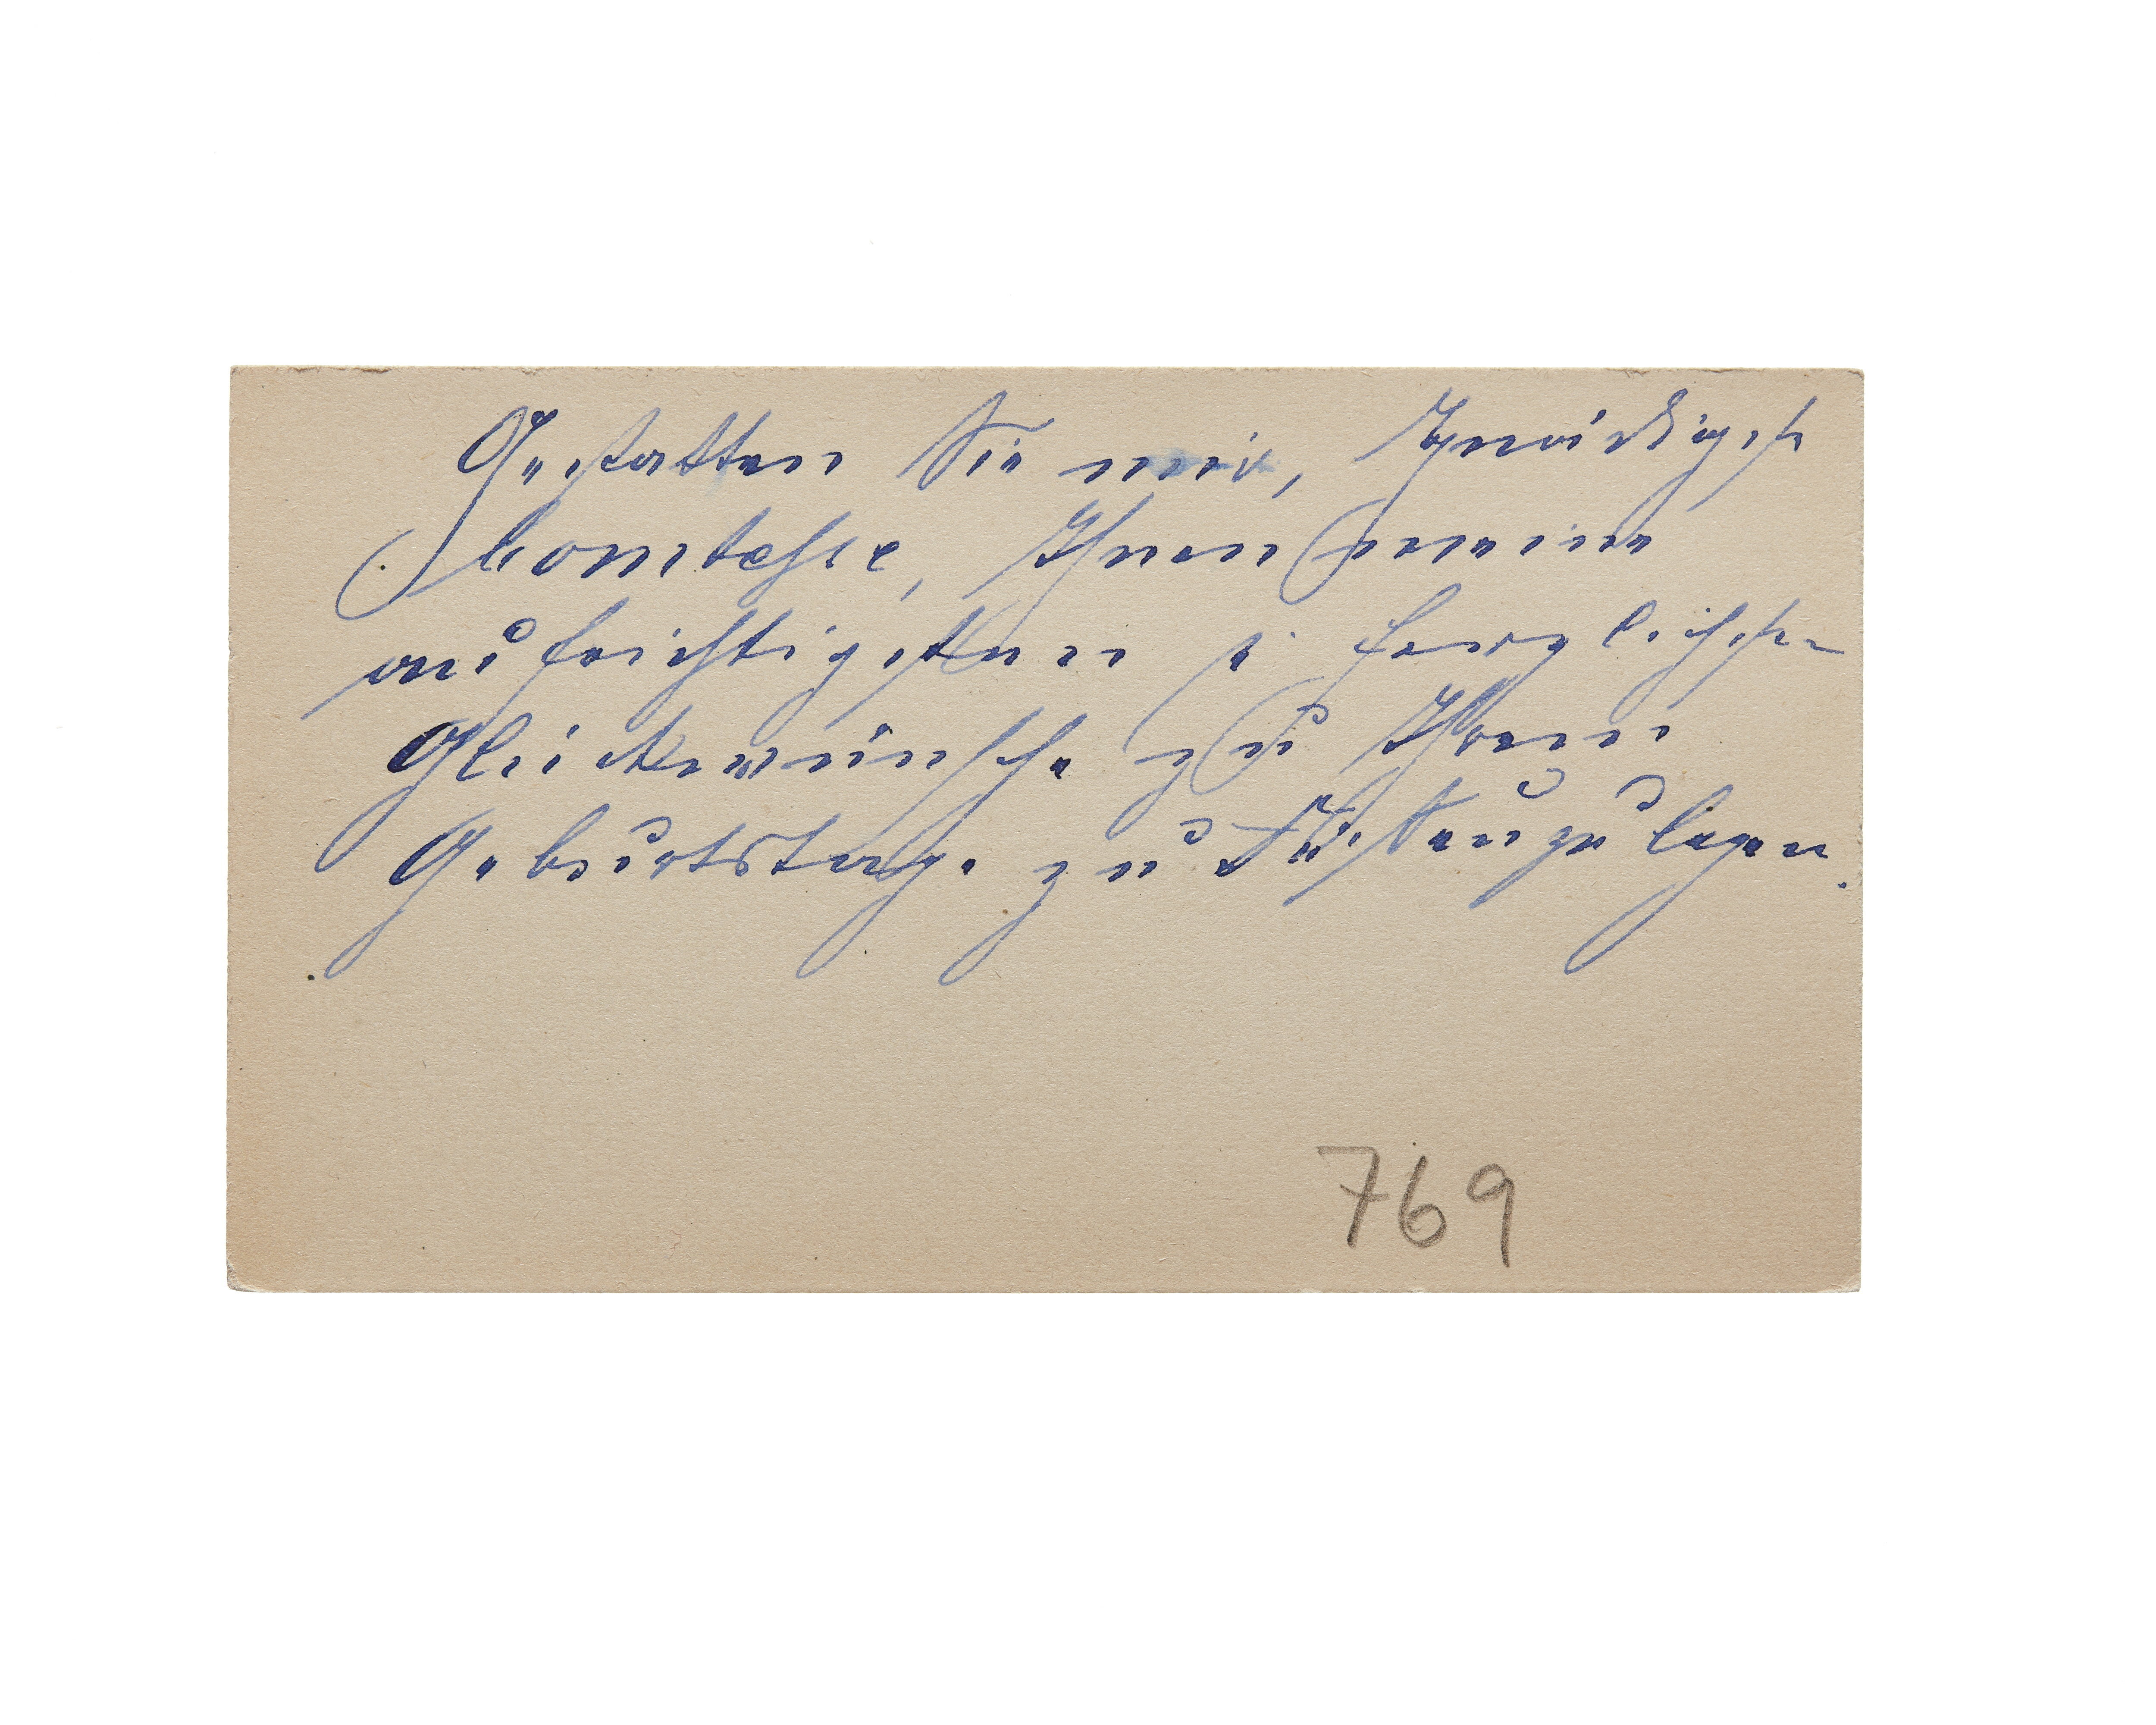 Gestatten Sie mir, gnädigste
Comtesse, Ihnen meine
aufrichtigsten u herzlichsten
Glückwünsche zu Ihrem
Geburtstage zu Füssen zu legen.
769